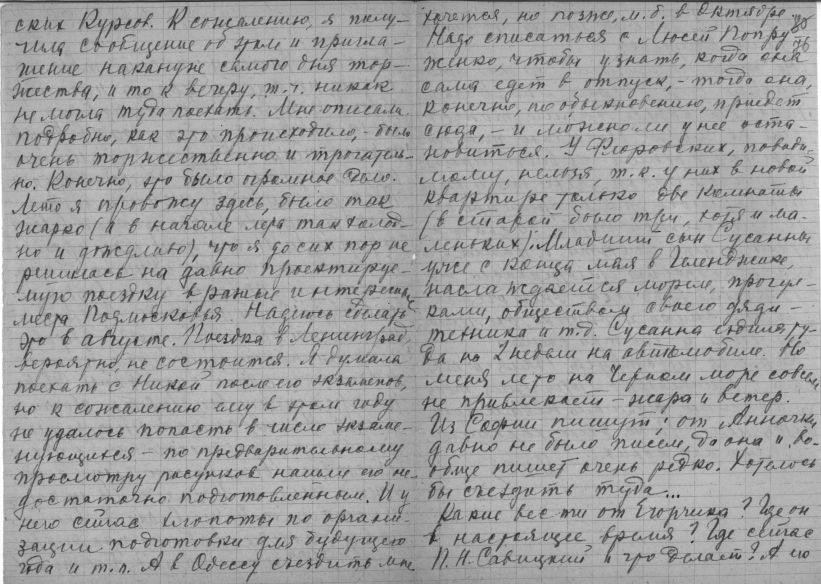 ских Курсов. К сожалению, я полу-
чила сообщение об этом и пригла-
жение накануне самого дня тор-
жества, и то к вечеру, т.ч. никак
не могла туда поехать. Мне описали
подробно, как это происходило, – было
очень торжественно и трогатель-
но. Конечно, это было огромное дело.
Лето я провожу здесь, было так
жарко (а в начале лета так холод-
но и дождливо), что я до сих пор не
решилась на давно проектируе-
мую поездку в разные интересные
места Подмосковья. Надеюсь сделать
это в августе. Поездка в Ленинград,
вероятно, не состоится. Я думала
поехать с Никой после его экзаменов,
но к сожалению ему в этом году
не удалось попасть в число экзаме-
нующихся – по предварительному
просмотру рисунков нашли его не-
достаточно подготовленным. И у
него сейчас хлопоты по органи-
зации подготовки для будущего
года и т.п. А в Одессу съездить мне
хочется, но позже, м.б. в октябре.
Надо списаться с Люсей Попру
женко, чтобы узнать, когда она
сама едет в отпуск, – тогда она,
конечно, по обыкновению, приедет
сюда, – и можно ли у нее оста-
новиться. У Флоровских, повиди-
мому, нельзя, т.к. у них в новой
квартире только две комнаты
(в старой было три, хотя и ма-
леньких). Младший сын Сусанны
уже с конца мая в Геленджике,
наслаждается морем, прогул-
ками, обществом своего дяди –
техника и т.д. Сусанна ездила ту-
да на 2 недели на автомобиле. Но
меня лето на Черном море совсем
не привлекает – жара и ветер.
Из Софии пишут; от Анночки
давно не было писем, да она и во-
обще пишет очень редко. Хотелось
бы съездить туда...
Какие вести от Егорчика? Где он
в настоящее время? Где сейчас
П.Н. Савицкий и что делает? А по